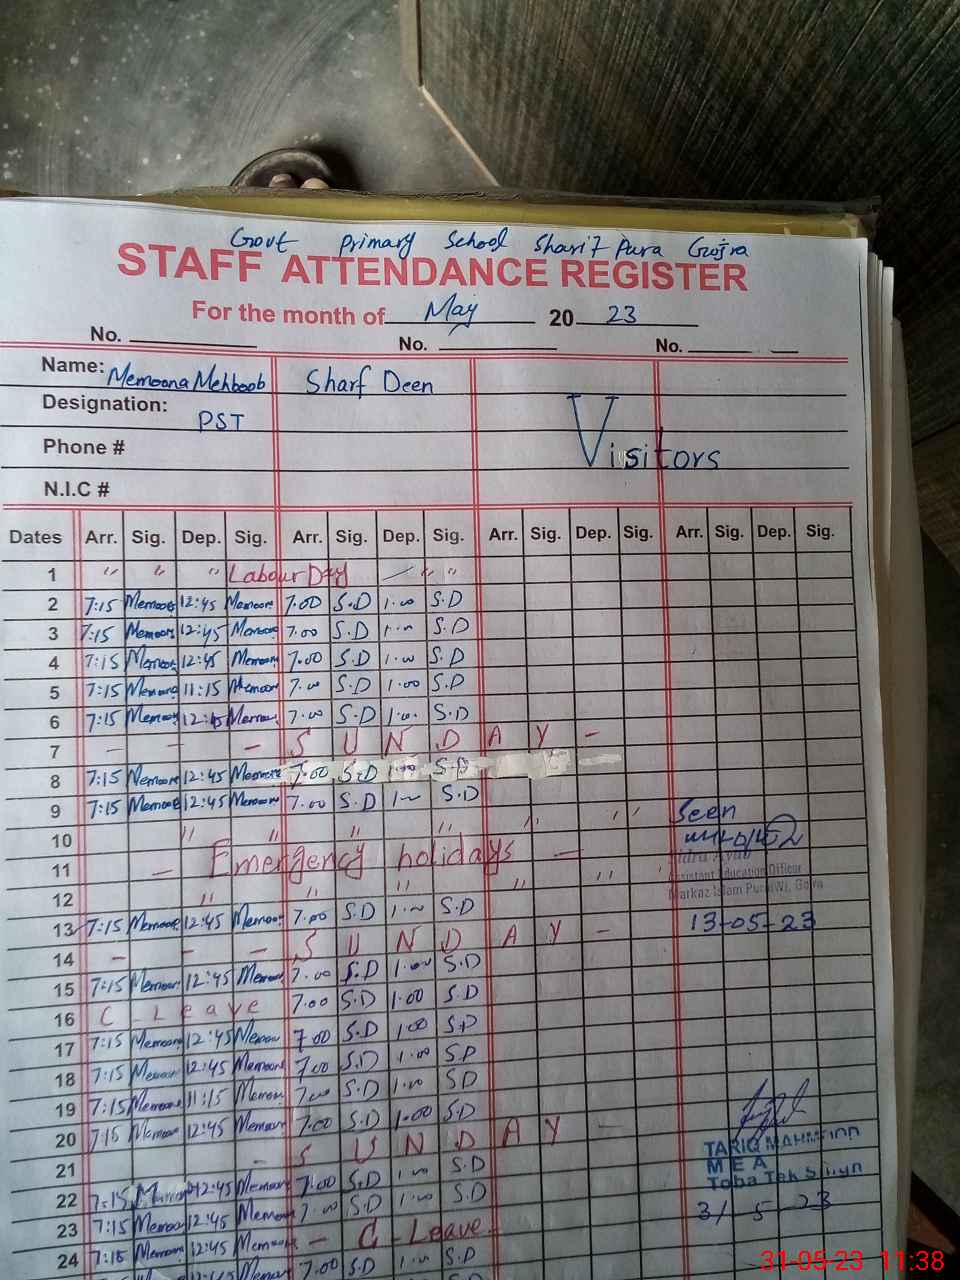 Govt Primary School Sharif Pura Gojra
STAFF ATTENDANCE REGISTER
For the month of May 20 23
No. No. No.
Name: Memoona Mehboob Sharf Deen
Designation: PST
Visitors
Phone #
N.I.C #
Dates Arr. Sig. Dep. Sig. Arr. Sig. Dep. Sig. Arr. Sig. Dep. Sig. Arr. Sig. Dep. Sig.
1 " " " Labour Day — " "
2 7:15 Memoona 12:45 Memoona 7.00 S.D 1.00 S.D
3 7:15 Memoona 12:45 Memoona 7.00 S.D 1.00 S.D
4 7:15 Memoona 12:45 Memoona 7.00 S.D 1.00 S.D
5 7:15 Memoona 11:15 Memoona 7.00 S.D 1.00 S.D
6 7:15 Memoona 12:45 Memoona 7.00 S.D 1.00 S.D
7 — — — S U N D A Y —
8 7:15 Memoona 12:45 Memoona 7.00 S.D 1.00 S.D
9 7:15 Memoona 12:45 Memoona 7.00 S.D 1.00 S.D Seen
10 " " " " " "
11 — Emergency holidays —
Assistant Education Officer
12 " " " " "
Markaz Islam Pura(W), Gojra
13 7:15 Memoona 12:45 Memoona 7.00 S.D 1.00 S.D 13-05-23
14 — — — S U N D A Y —
15 7:15 Memoona 12:45 Memoona 7.00 S.D 1.00 S.D
16 C - Leave 7.00 S.D 1.00 S.D
17 7:15 Memoona 12:45 Memoona 7.00 S.D 1.00 S.D
18 7:15 Memoona 12:45 Memoona 7.00 S.D 1.00 S.D
19 7:15 Memoona 11:15 Memoona 7.00 S.D 1.00 S.D
20 7:15 Memoona 12:45 Memoona 7.00 S.D 1.00 S.D
21 — S U N D A Y —
TARIQ MAHMOOD
M E A
Toba Tek Singh
22 7:15 12:45 Memoona 7.00 S.D 1.00 S.D
23 7:15 Memoona 12:45 Memoona 7.00 S.D 1.00 S.D 31-5-23
24 7:15 Memoona 12:45 Memoona — C - Leave
7.00 S.D 1.00 S.D
31-05-23 11:38